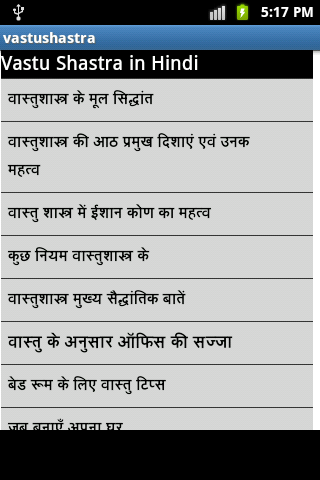 5:17 PM
vastushastra
Vastu Shastra in Hindi
वास्तुशास्त्र के मूल सिद्धांत
वास्तुशास्त्र की आठ प्रमुख दिशाएं एवं उनक
महत्व
वास्तु शास्त्र में ईशान कोण का महत्व
कुछ नियम वास्तुशास्त्र के
वास्तुशास्त्र मुख्य सैद्धांतिक बातें
वास्तु के अनुसार ऑफिस की सज्जा
बेड रूम के लिए वास्तु टिप्स
जब बनाएँ अपना घर